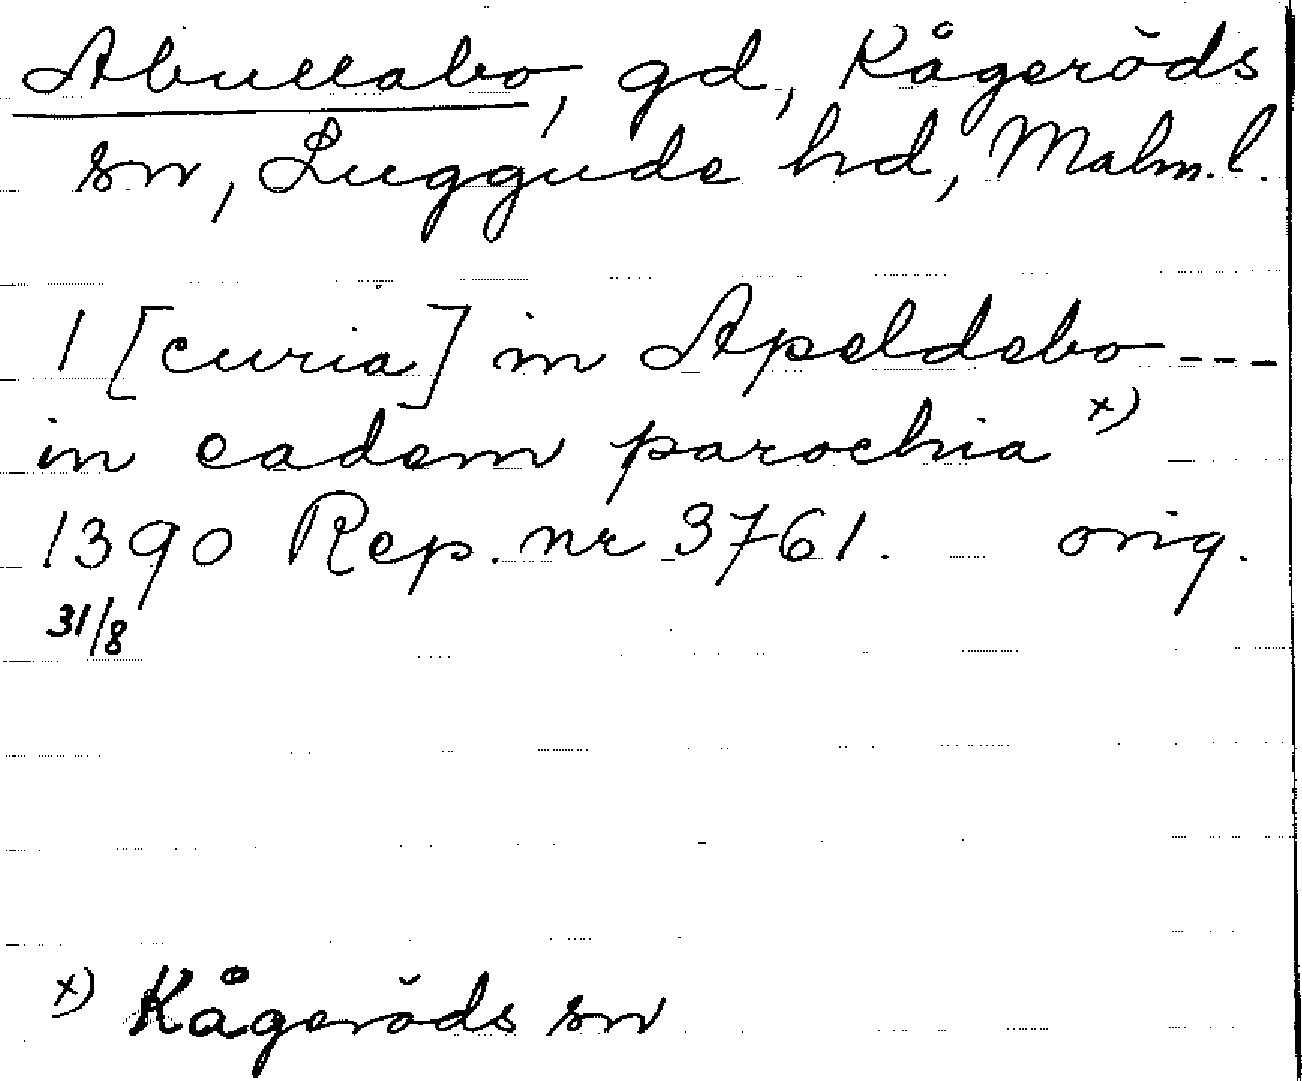 Abullabo, gd, Kågeröds
sn, Luggude hd, Malm. l.
1 [curia] in Apeldebo ---
in eadem parochia x)
1390 Rep. nr 3761. orig.
31/8
x) Kågeröds sn